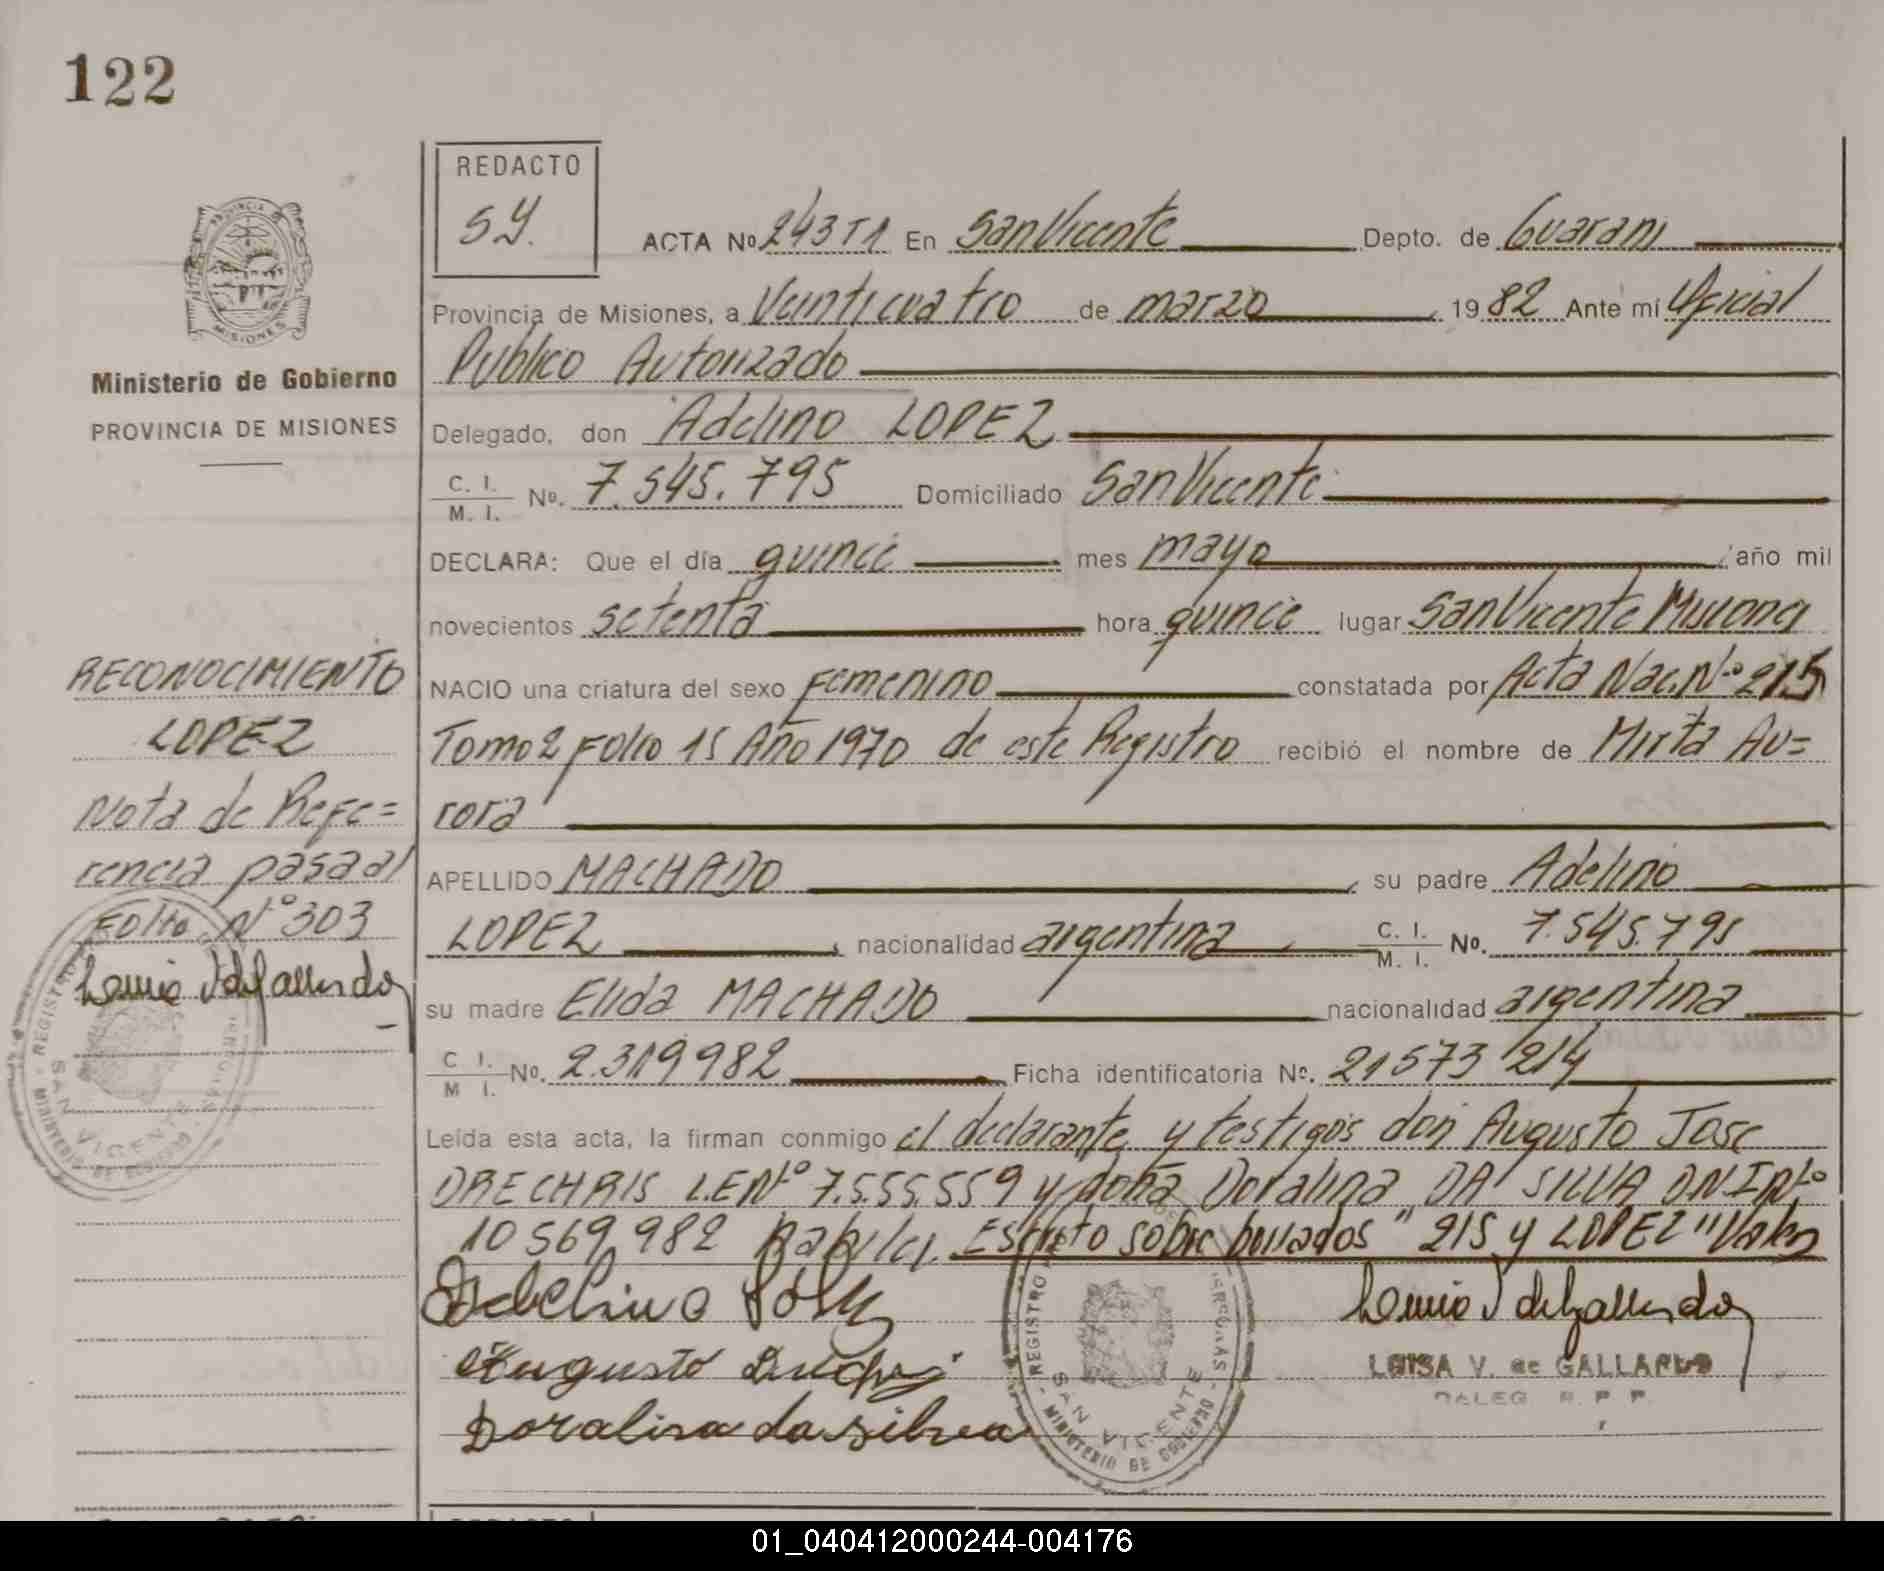 122
REDACTO
SY.
ACTA Nº 243 T1 En San Vicente Depto. de Guarani
Provincia de Misiones, a Veinticuatro de marzo 1982 Ante mí Oficial
Publico Autorizado
Delegado, don Adelino LOPEZ
C. I. / M. I. Nº. 7.545.795 Domiciliado San Vicente
DECLARA: Que el día quince mes mayo, año mil
novecientos setenta hora quince lugar San Vicente Misiones
NACIO una criatura del sexo Femenino constatada por Acta Nac. Nº 215
Tomo 2 Folio 15 Año 1970 de este Registro recibió el nombre de Mirta Au=
rora
APELLIDO MACHADO, su padre Adelino
LOPEZ, nacionalidad argentina C. I. / M. I. Nº. 7.545.795
su madre Elida MACHADO nacionalidad argentina
C I. / M I. Nº. 2.319982 Ficha identificatoria Nº. 21573214
Leída esta acta, la firman conmigo el declarante y testigos don Augusto Jose
DRECHRIS L.E Nº 7.555.559 y doña Doralina DA SILVA D.N.I Nº
10569.982 Escrito sobre borrados "215 y LOPEZ" Valen
Augusto
Doralina da silva
LUISA V. de GALLARDO
DALEG R. P. P.
PROVINCIA DE
MISIONES
Ministerio de Gobierno
PROVINCIA DE MISIONES
RECONOCIMIENTO
LOPEZ
Nota de Refe=
rencia pasa al
Folio Nº 303
REGISTRO
SAN VICENTE
MINISTERIO DE GOBIERNO
REGISTRO
SAN VICENTE
MINISTERIO DE GOBIERNO
01_040412000244-004176